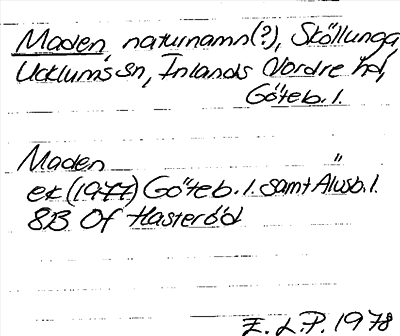 Maden, naturnamn(?), Sköllunga,
Ucklums sn, Inlands Nordre hd,
Göteb. l.
Maden
ek (1977) Göteb. l. samt Älvsb. l.
8B Of Hasteröd
E. L.P. 1978